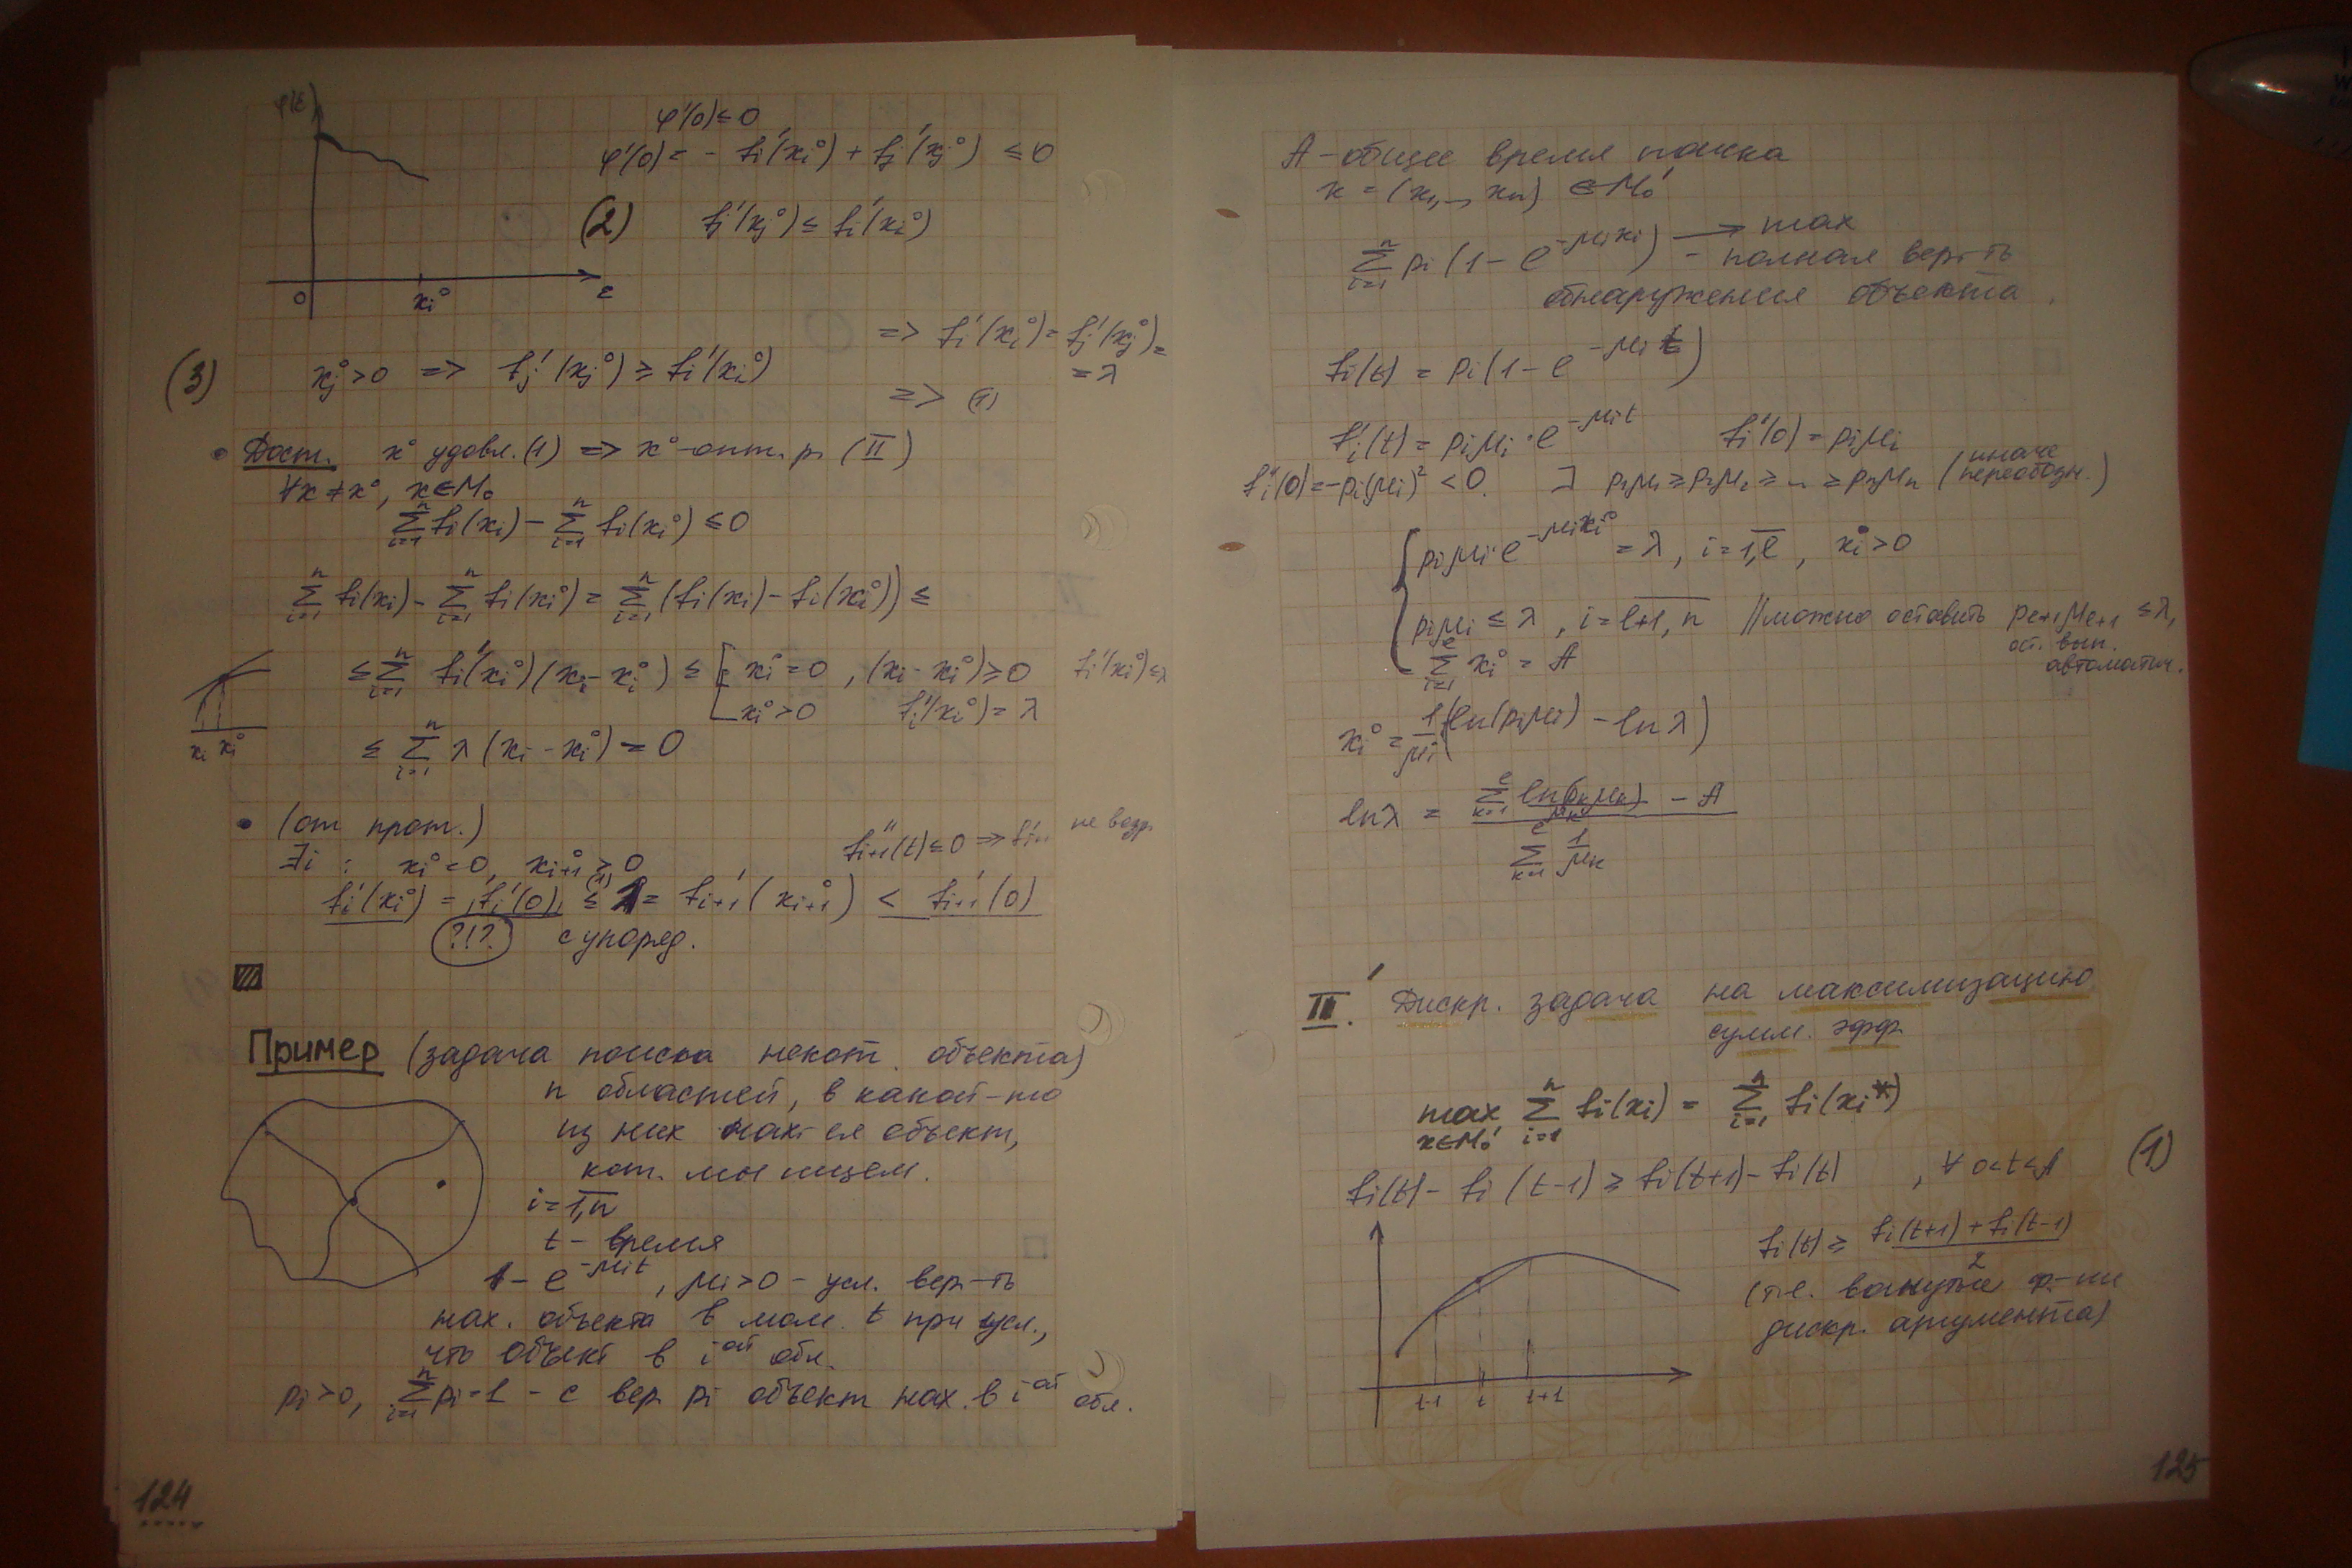 φ(ε)
φ'(0) ≤ 0
φ'(0) = - fi'(xi°) + fj'(xj°) ≤ 0
(2) fj'(xj°) ≤ fi'(xi°)
0 xi° ε
=> fi'(xi°) = fj'(xj°) =
= λ
(3) xj° > 0 => fj'(xj°) ≥ fi'(xi°)
=> (1)
• Дост. x° удовл. (1) => x° - опт. р. (II)
∀x ≠ x°, x ∈ M₀
∑ⁿᵢ₌₁ fi(xi) - ∑ⁿᵢ₌₁ fi(xi°) ≤ 0
∑ⁿᵢ₌₁ fi(xi) - ∑ⁿᵢ₌₁ fi(xi°) = ∑ⁿᵢ₌₁ (fi(xi) - fi(xi°)) ≤
≤ ∑ⁿᵢ₌₁ fi'(xi°)(xi - xi°) ≤ [ xi° = 0, (xi - xi°) ≥ 0 fi'(xi°) ≤ λ
xi° > 0 fi'(xi°) = λ
xi xi°
≤ ∑ⁿᵢ₌₁ λ (xi - xi°) = 0
• (от прот.)
fi+1''(t) ≤ 0 => fi+1' не возр.
∃i : xi° = 0, xi+1° > 0
fi'(xi°) = fi'(0) ≤⁽¹⁾ λ = fi+1'(xi+1°) < fi+1'(0)
?!? с упоряд.
Пример (задача поиска некот. объекта)
n областей, в какой-то
из них нах-ся объект,
кот. мы ищем.
i = 1,n
t - время
1 - e^(-μit), μi > 0 - усл. вер-ть
нах. объекта в мом. t при усл.,
что объект в i-ой обл.
pi > 0, ∑ⁿᵢ₌₁ pi = 1 - с вер. pi объект нах. в i-ой обл.
124
A - общее время поиска
x = (x1, ..., xn) ∈ M₀'
∑ⁿᵢ₌₁ pi (1 - e^(-μixi)) → max
- полная вер-ть
обнаружения объекта.
fi(t) = pi(1 - e^(-μit))
fi'(t) = piμi · e^(-μit) fi'(0) = piμi
fi''(0) = -pi(μi)² < 0. ⊐ p1μ1 ≥ p2μ2 ≥ ... ≥ pnμn (иначе переобозн.)
{ piμi e^(-μixi°) = λ, i = 1,l, xi° > 0
piμi ≤ λ, i = l+1, n // можно оставить pl+1μl+1 ≤ λ,
ост. вып.
автоматич.
∑ˡᵢ₌₁ xi° = A
xi° = 1/μi (ln(piμi) - ln λ)
ln λ = (∑ˡₖ₌₁ ln(pkμk)/μk - A) / (∑ˡₖ₌₁ 1/μk)
II'. Дискр. задача на максимизацию
сумм. эфф.
max x∈M₀' ∑ⁿᵢ₌₁ fi(xi) = ∑ⁿᵢ₌₁ fi(xi*)
fi(t) - fi(t-1) ≥ fi(t+1) - fi(t), ∀ 0<t<A (1)
fi(t) ≥ (fi(t+1) + fi(t-1)) / 2
(т.е. вогнутые ф-ии
дискр. аргумента)
t-1 t t+1
125